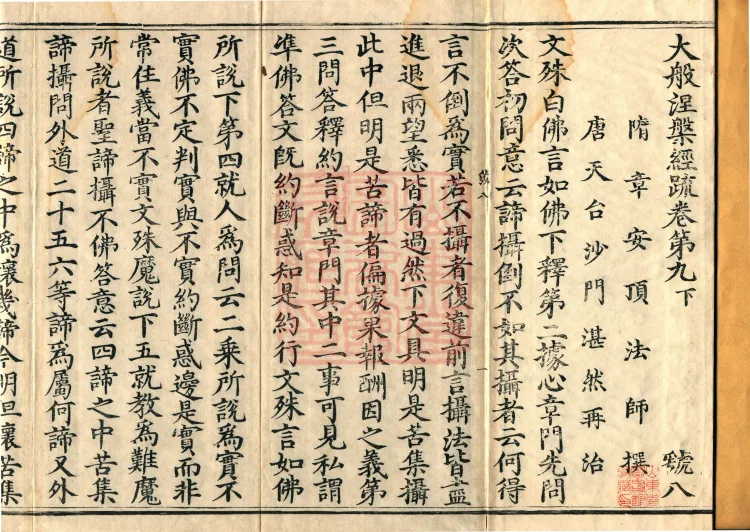 大般涅槃經疏卷第九下 號八
隋章安頂法師撰
唐天台沙門湛然再治
文殊白佛言如佛下釋第二據心章門先問
次答初問意云諦攝倒不如其攝者云何得
言不倒為實若不攝者復違前言攝法皆盡
號八 一
進退兩望悉皆有過然下文具明是苦集攝
此中但明是苦諦者偏據果報酬因之義第
三問答釋約言說章門其中二事可見私謂
準佛答文旣約斷惑知是約行文殊言如佛
所說下第四就人為問云二乘所說為實不
實佛不定判實與不實約斷惑邊是實而非
常住義當不實文殊魔說下五就教為難魔
所說者聖諦攝不佛答意云四諦之中苦集
諦攝問外道二十五六等諦為屬何諦又外
道所說四諦之中為壤幾諦今明但壤苦集